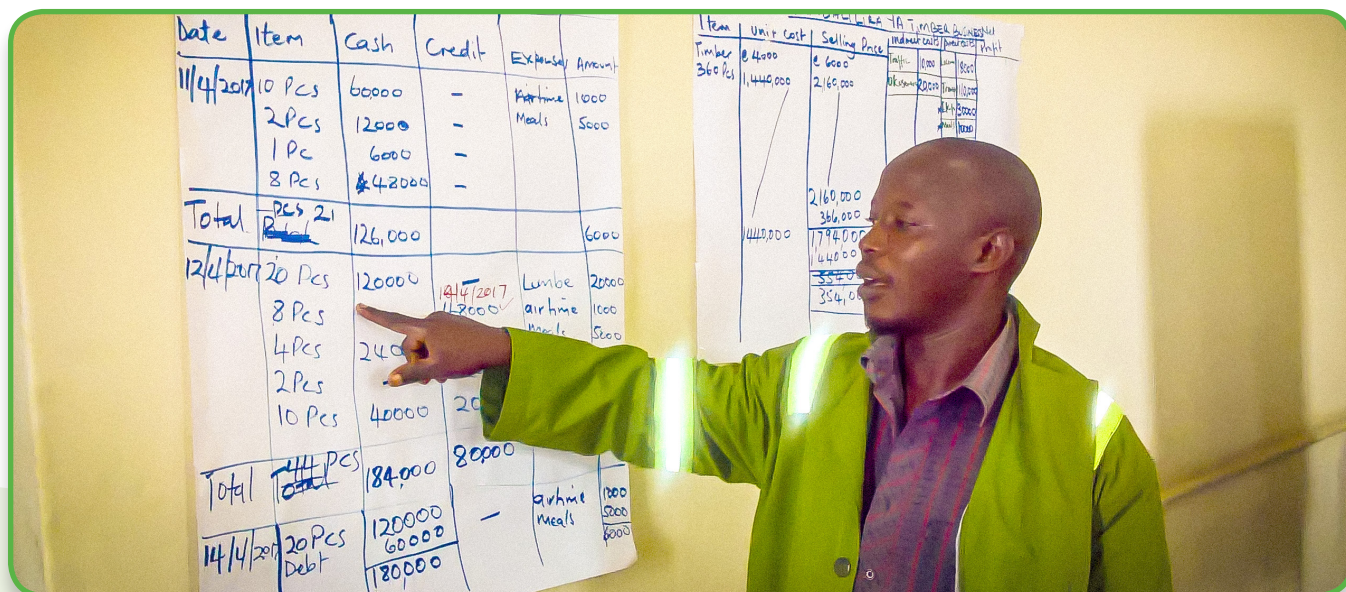 Date Item Cash Credit Expenses Amount
11/4/2017 10 Pcs 60,000 – Airtime 1000
2 Pcs 12000 – Meals 5000
1 Pc 6000 –
8 Pcs 48000 –
Total Pcs 21 126,000 6000
12/4/2017 20 Pcs 120000 – Lumbe 20000
8 Pcs 4/2017 48000 airtime 1000
4 Pcs 240 Meals 5000
2 Pcs
10 Pcs 40000 20
Total 44 Pcs 184,000 80,000
14/4/201 20 Pcs 120000 – airtime 1000
Debt 60000 meals 5000
180,000 6000
YA TIMBER BUSINESS
Item Unit cost Selling Price Indirect costs Profit
Timber @ 4000 @ 6000 10,000 1800
360 Pcs 1,440,000 2,160,000 20,000
30000
2160,000
366,000
1440,000 1,794,000
144000
354,0